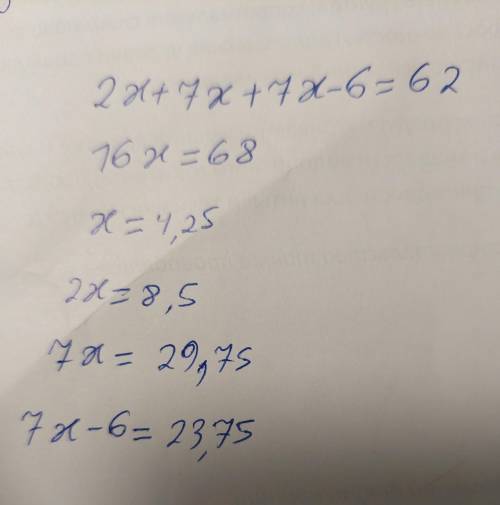 2x+7x+7x-6=62
16x=68
x=4,25
2x=8,5
7x=29,75
7x-6=23,75